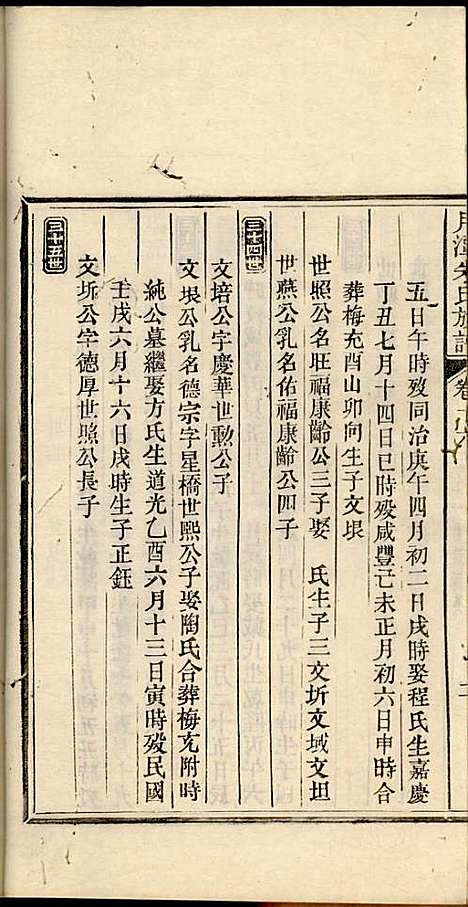 五日午時歿同治庚午四月初二日戌時娶程氏生嘉慶
丁丑七月十四日巳時歿咸豐己未正月初六日申時合
葬梅充酉山卯向生子文垠
世照公名旺福康齡公三子娶　氏生子三文圻文域文坦
世燕公乳名佑福康齡公四子
三十四世
文培公字慶華世勲公子
文垠公乳名德宗字星橋世熙公子娶陶氏合葬梅充附時
純公墓繼娶方氏生道光乙酉六月十三日寅時歿民國
壬戌六月十六日戌時生子正鈺
三十五世
文圻公字德厚世照公長子